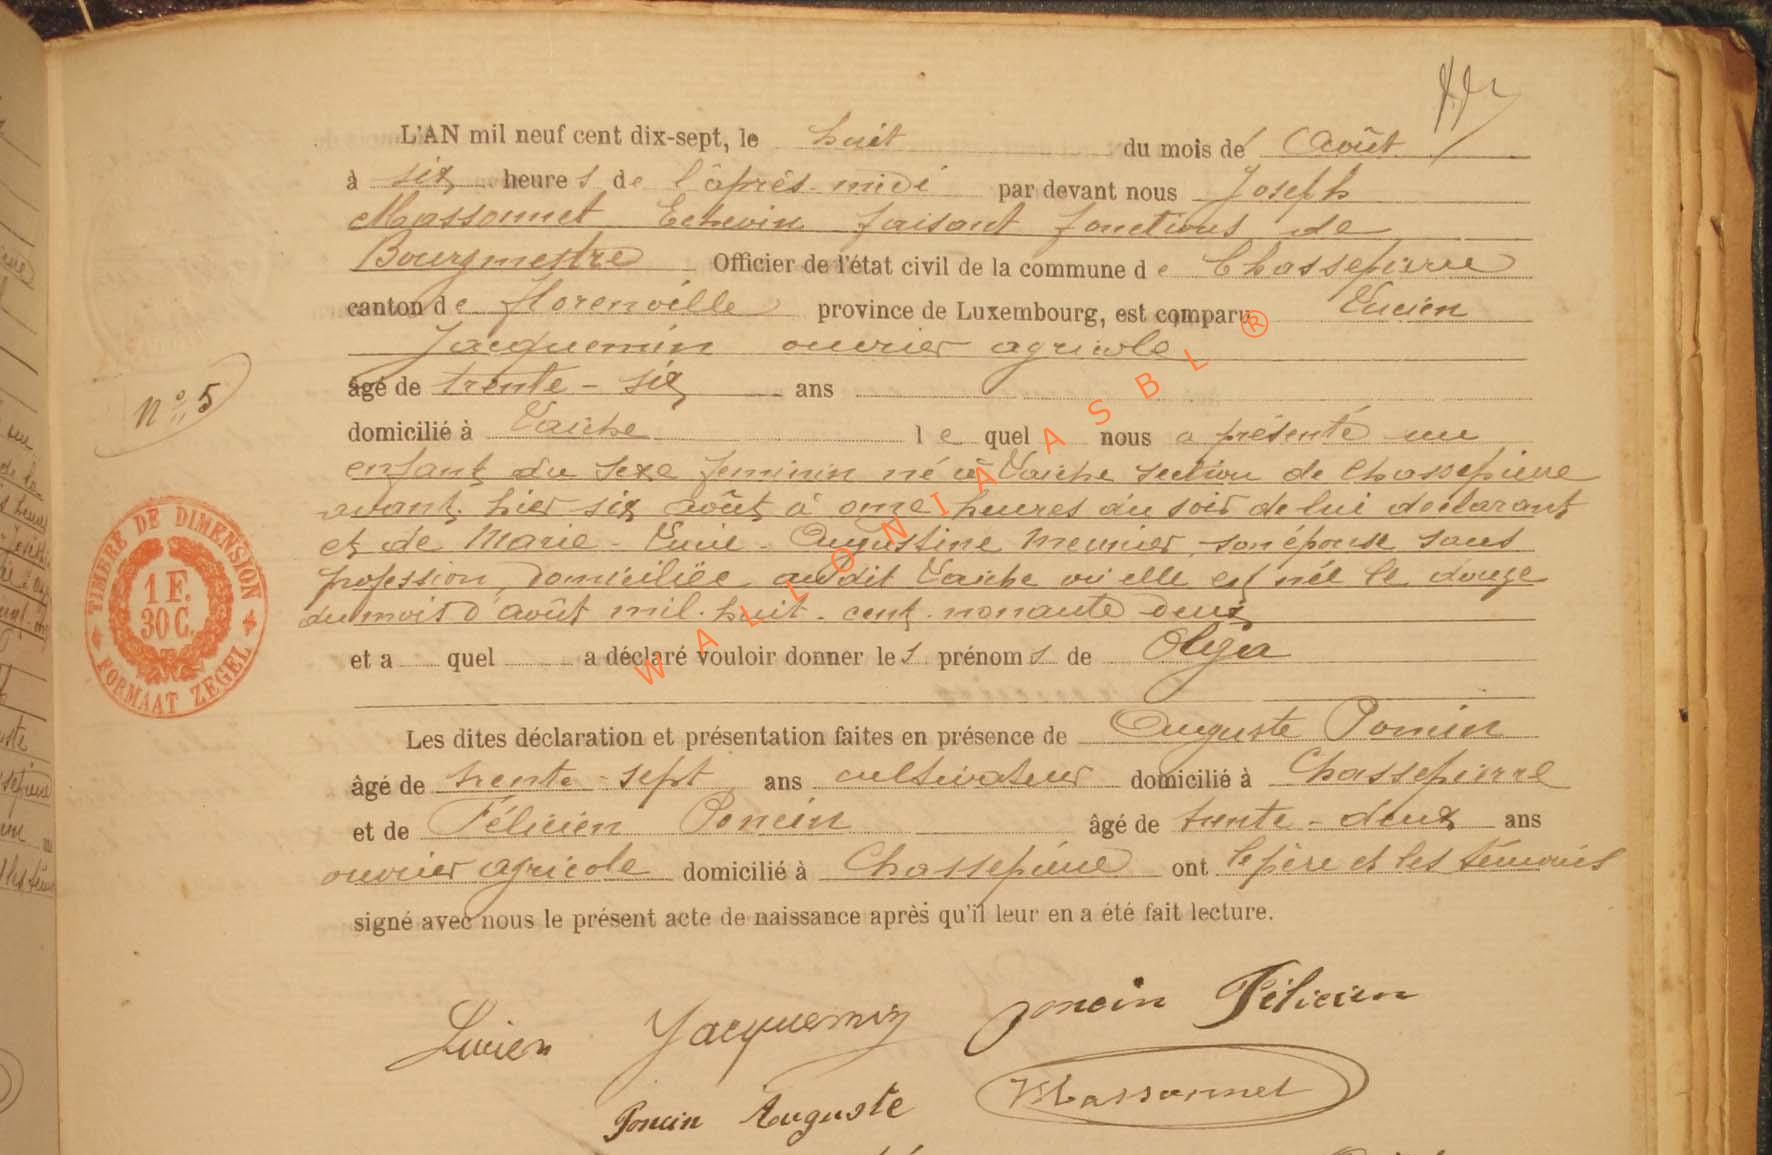 L'AN mil neuf cent dix-sept, le huit du mois de Août
à six heures de l'après-midi par devant nous Joseph
Massonnet Echevin faisant fonctions de
Bourgmestre Officier de l'état civil de la commune de Chassepierre
canton de Florenville province de Luxembourg, est comparu Lucien
Jacquemin ouvrier agricole
âgé de trente-six ans
N° 5
domicilié à Laiche lequel nous a présenté un
enfant du sexe feminin né à Laiche section de Chassepierre
avant-hier six août à onze heures du soir de lui déclarant
et de Marie-Lucie-Augustine Meunier, son épouse sans
profession, domiciliée audit Laiche où elle est née le douze
du mois d'août mil-huit-cent-nonante deux
et a quel a déclaré vouloir donner les prénoms de Olga
Les dites déclaration et présentation faites en présence de Auguste Poncin
âgé de trente-sept ans cultivateur domicilié à Chassepierre
et de Félicien Poncin âgé de trente-deux ans
ouvrier agricole domicilié à Chassepierre ont le père et les témoins
signé avec nous le présent acte de naissance après qu'il leur en a été fait lecture.
Lucien Jacquemin Poncin Félicien
Poncin Auguste Massonnet
TIMBRE DE DIMENSION
1 F.
30 C.
FORMAAT ZEGEL
WALLONIA ASBL ®